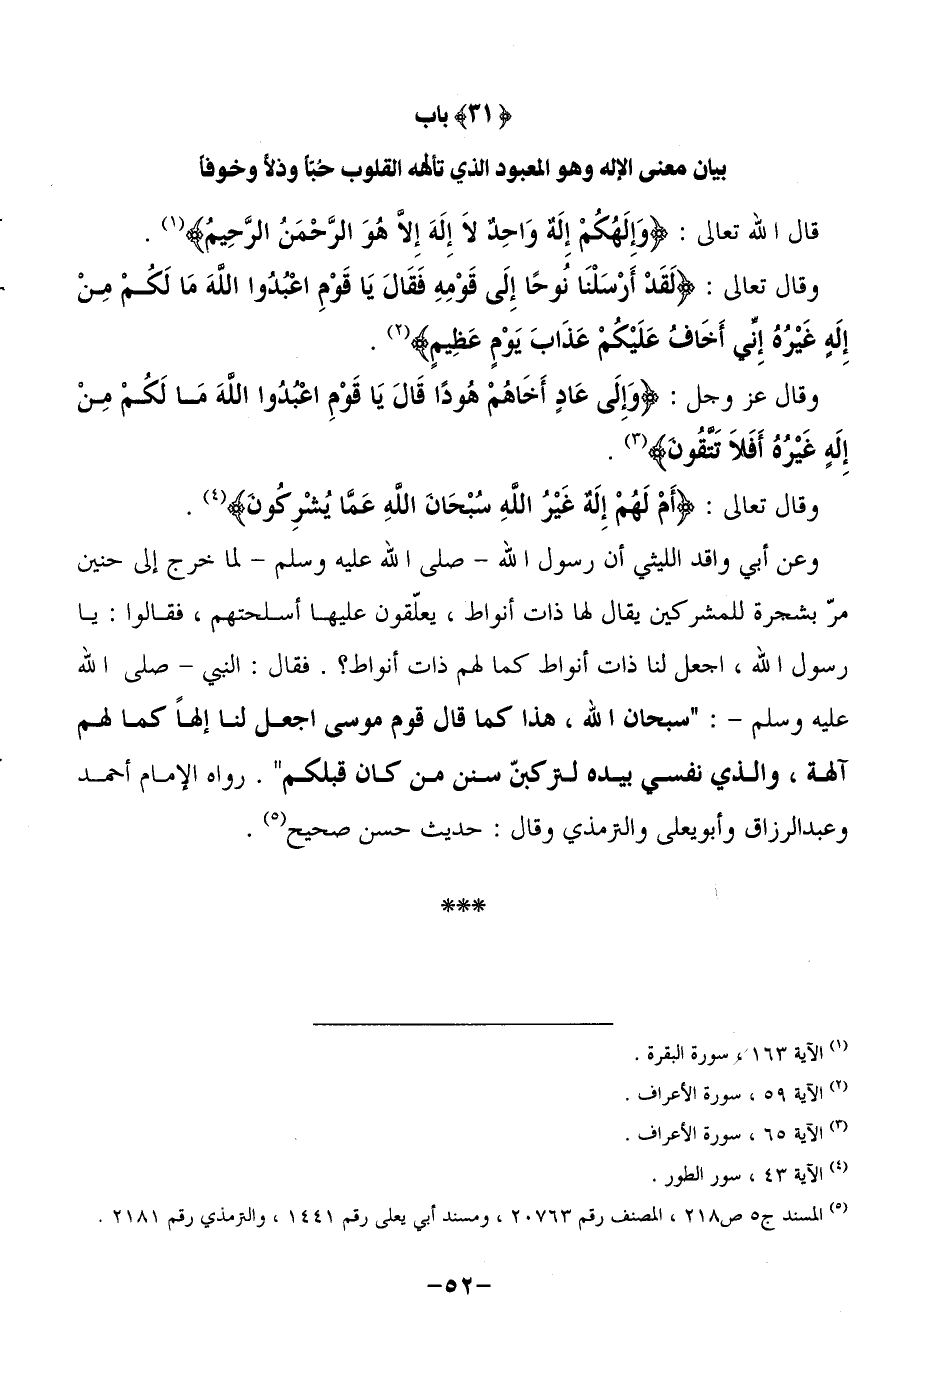 ﴿٣١﴾ باب
بيان معنى الإله وهو المعبود الذي تألهه القلوب حبّاً وذلاً وخوفاً
قال الله تعالى : ﴿وَإِلَهُكُمْ إِلَهٌ وَاحِدٌ لاَ إِلَهَ إِلاَّ هُوَ الرَّحْمَنُ الرَّحِيمُ﴾(١) .
وقال تعالى : ﴿لَقَدْ أَرْسَلْنَا نُوحًا إِلَى قَوْمِهِ فَقَالَ يَا قَوْمِ اعْبُدُوا اللَّهَ مَا لَكُمْ مِنْ
إِلَهٍ غَيْرُهُ إِنِّي أَخَافُ عَلَيْكُمْ عَذَابَ يَوْمٍ عَظِيمٍ﴾(٢) .
وقال عز وجل : ﴿وَإِلَى عَادٍ أَخَاهُمْ هُودًا قَالَ يَا قَوْمِ اعْبُدُوا اللَّهَ مَا لَكُمْ مِنْ
إِلَهٍ غَيْرُهُ أَفَلاَ تَتَّقُونَ﴾(٣) .
وقال تعالى : ﴿أَمْ لَهُمْ إِلَهٌ غَيْرُ اللَّهِ سُبْحَانَ اللَّهِ عَمَّا يُشْرِكُونَ﴾(٤) .
وعن أبي واقد الليثي أن رسول الله – صلى الله عليه وسلم – لما خرج إلى حنين
مرّ بشجرة للمشركين يقال لها ذات أنواط ، يعلّقون عليها أسلحتهم ، فقالوا : يا
رسول الله ، اجعل لنا ذات أنواط كما لهم ذات أنواط؟ . فقال : النبي – صلى الله
عليه وسلم – : "سبحان الله ، هذا كما قال قوم موسى اجعل لنا إلهاً كما لهم
آلهة ، والذي نفسي بيده لتركبنّ سنن من كان قبلكم" . رواه الإمام أحمد
وعبدالرزاق وأبويعلى والترمذي وقال : حديث حسن صحيح(٥) .
***
(١) الآية ١٦٣ ، سورة البقرة .
(٢) الآية ٥٩ ، سورة الأعراف .
(٣) الآية ٦٥ ، سورة الأعراف .
(٤) الآية ٤٣ ، سور الطور .
(٥) المسند ج٥ ص٢١٨ ، المصنف رقم ٢٠٧٦٣ ، ومسند أبي يعلى رقم ١٤٤١ ، والترمذي رقم ٢١٨١ .
–٥٢–